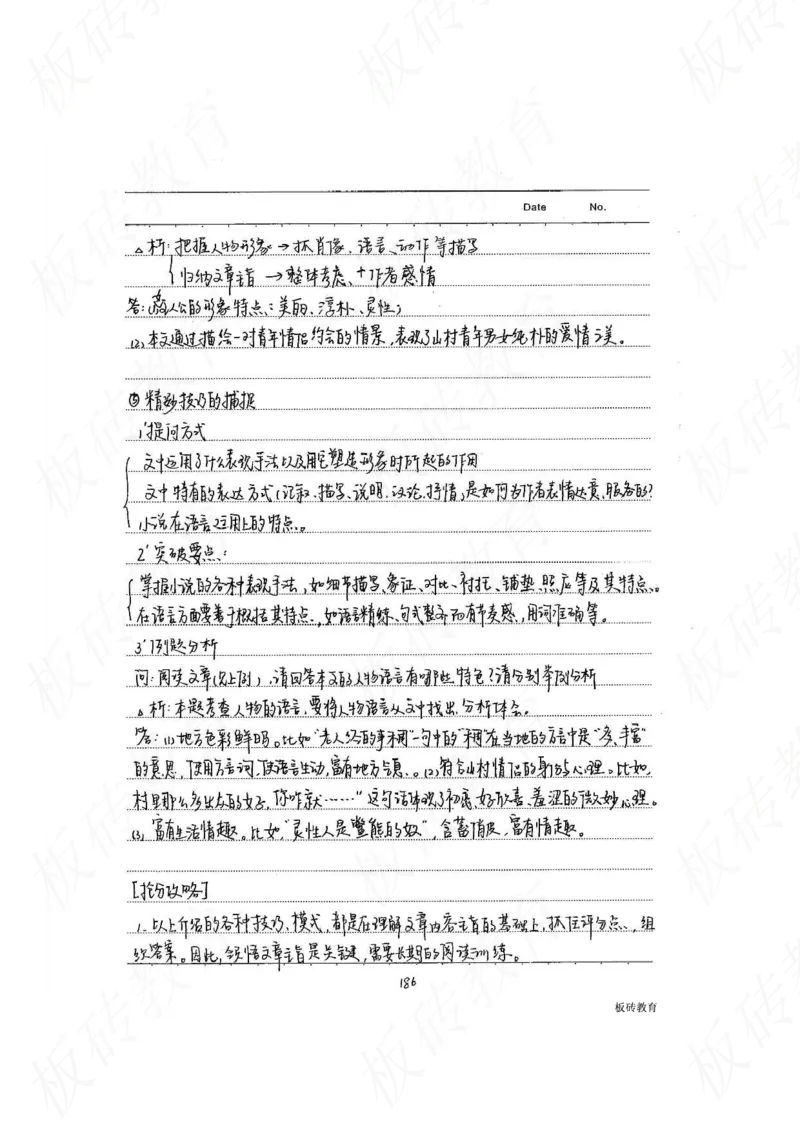 Date No.
△析:把握人物形象→抓肖像、语言、动作等描写
归纳文章主旨→整体考虑、+作者感情
答:主人公的形象特点:美丽、淳朴、灵性;
(2)本文通过描绘一对青年情侣约会的情景,表现了山村青年男女纯朴的爱情之美。
精妙技巧的捕捉
1°提问方式
文中运用了什么表现手法以及用它塑造形象时所起的作用
文中特有的表达方式(记叙、描写、说明、议论、抒情)是如何为作者表情达意服务的?
小说在语言运用上的特点。
2°突破要点:
掌握小说的各种表现手法,如细节描写、象征、对比、衬托、铺垫、照应等及其特点。
在语言方面要善于概括其特点,如语言精炼、句式整齐而有节奏感,用词准确等。
3°例题分析
问:阅读文章(见上例),请回答本文的人物语言有哪些特色?请分别举例分析
△析:本题考查人物的语言,要将人物语言从文中找出,分析体会。
答:(1)地方色彩鲜明。比如"老人经的事稠"一句中的"稠"在当地的方言中是"多、丰富"
的意思,使用方言词,使语言生动,富有地方气息。(2)符合山村情侣的身份与心理。比如,
村里那么多出众的女子,你咋就……"这句话体现了初恋女子欣喜、羞涩的微妙心理。
(3)富有生活情趣。比如,"灵性人是蠢熊的奴",含蓄俏皮,富有情趣。
[抢分攻略]
1.以上介绍的各种技巧、模式,都是在理解文章内容主旨的基础上,抓住评分点,组
织答案。因此,领悟文章主旨是关键,需要长期的阅读训练。
186
板砖教育